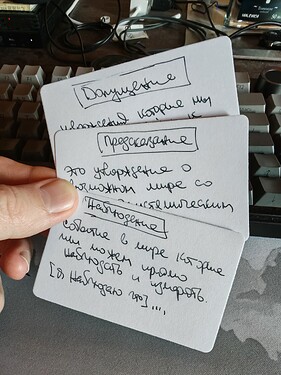 Допущение
которые мы
Предсказание
это утверждение о
возможном мире со
Наблюдение
событие в мире которые
мы можем прямо
наблюдать и измерять.
[я наблюдаю что]....